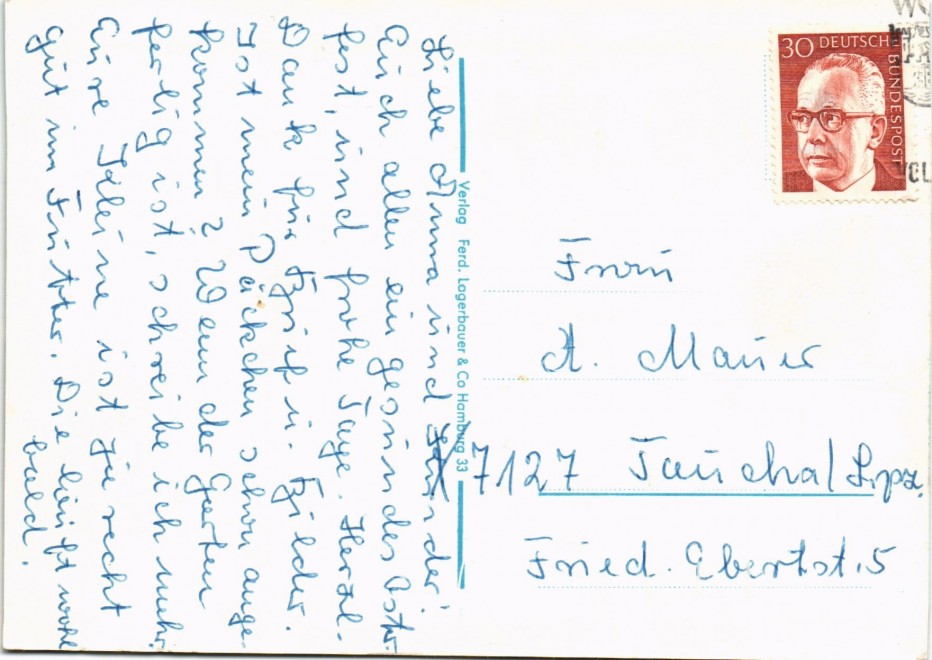 Liebe Anna und Kinder!
Euch allen ein gesundes Oster-
fest, und frohe Tage. Herzl.
Dank für Brief u. Bilder.
Ist mein Päckchen schon ange-
kommen? Wenn der Garten
fertig ist, schreibe ich mehr.
Eure Kleine ist ja recht
gut im Futter. Die läuft wohl
bald.
Verlag Ferd. Lagerbauer & Co Hamburg 33
30 DEUTSCHE
BUNDESPOST
Frau
A. Mauer
X 7127 Taucha/Lpz.
Fried. Ebertst. 5